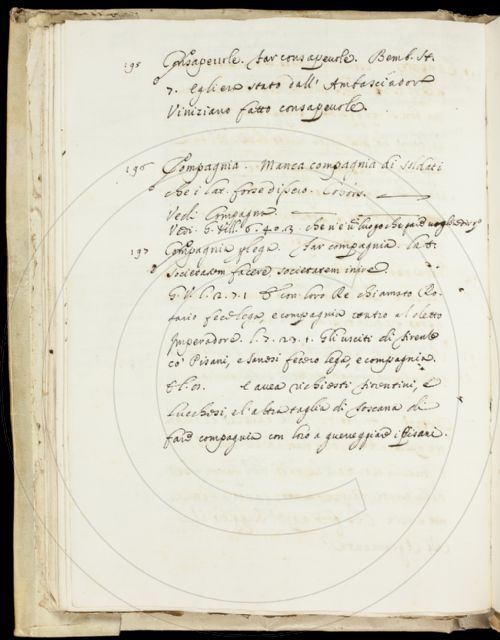 195 Consapeuole. Far consapeuole. Bemb. St.
7. Egli era stato dall' Ambasciadore
Viniziano fatto consapeuole.
196 Compagnia. Manca compagnia di soldati
che i lat. forse diseio. Cohors.
Vedi Compagna.
Vedi. G. Vill. 6. 40. 3. che n'è un luogo che
197 Compagnia p lega. Far compagnia. lat.
societatem facere, societatem inire.
G. V. l. 2. 7. 1 E con loro Re chiamato Ro-
tario fece lega, e compagnia contro al detto
Imperadore. l. 7. 23. 1. Gli usciti di Firenze
co' Pisani, e Sanesi fecero lega, e compagnia.
E l. 10. e auea richiesti Fiorentini, e
Lucchesi, e l'altra taglia di Toscana di
fare compagnia con loro a guereggiare i Pisani.